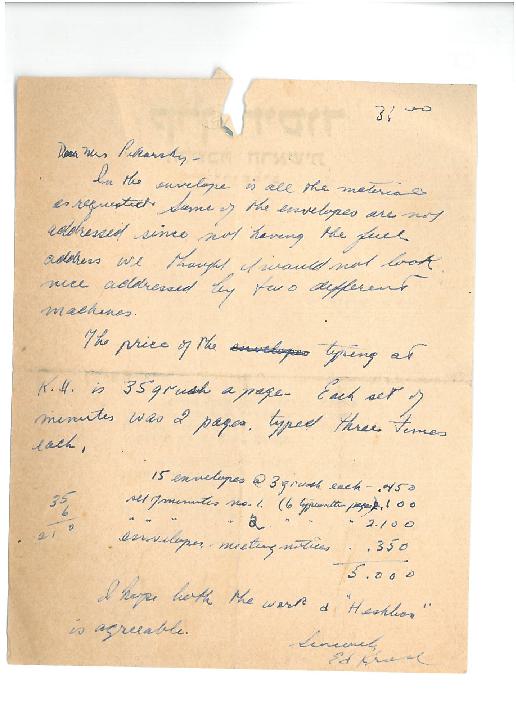 Dear Mrs Pikarsky -
In the envelope is all the material
as requested. Some of the envelopes are not
addressed since not having the full
address we thought it would not look
nice addressed by two different
machines.
The price of the envelopes typing at
K.H. is 35 grush a page. Each set of
minutes was 2 pages, typed three times
each.
15 envelopes @ 3 grush each - .450
set of minutes no. 1. (6 typewritten pages) 2.100
" " " " 2 " " " 2.100
envelopes - meeting notices . .350
5.000
35
6
210
I hope both the work & "Heshbon"
is agreeable.
Sincerely,
Ed